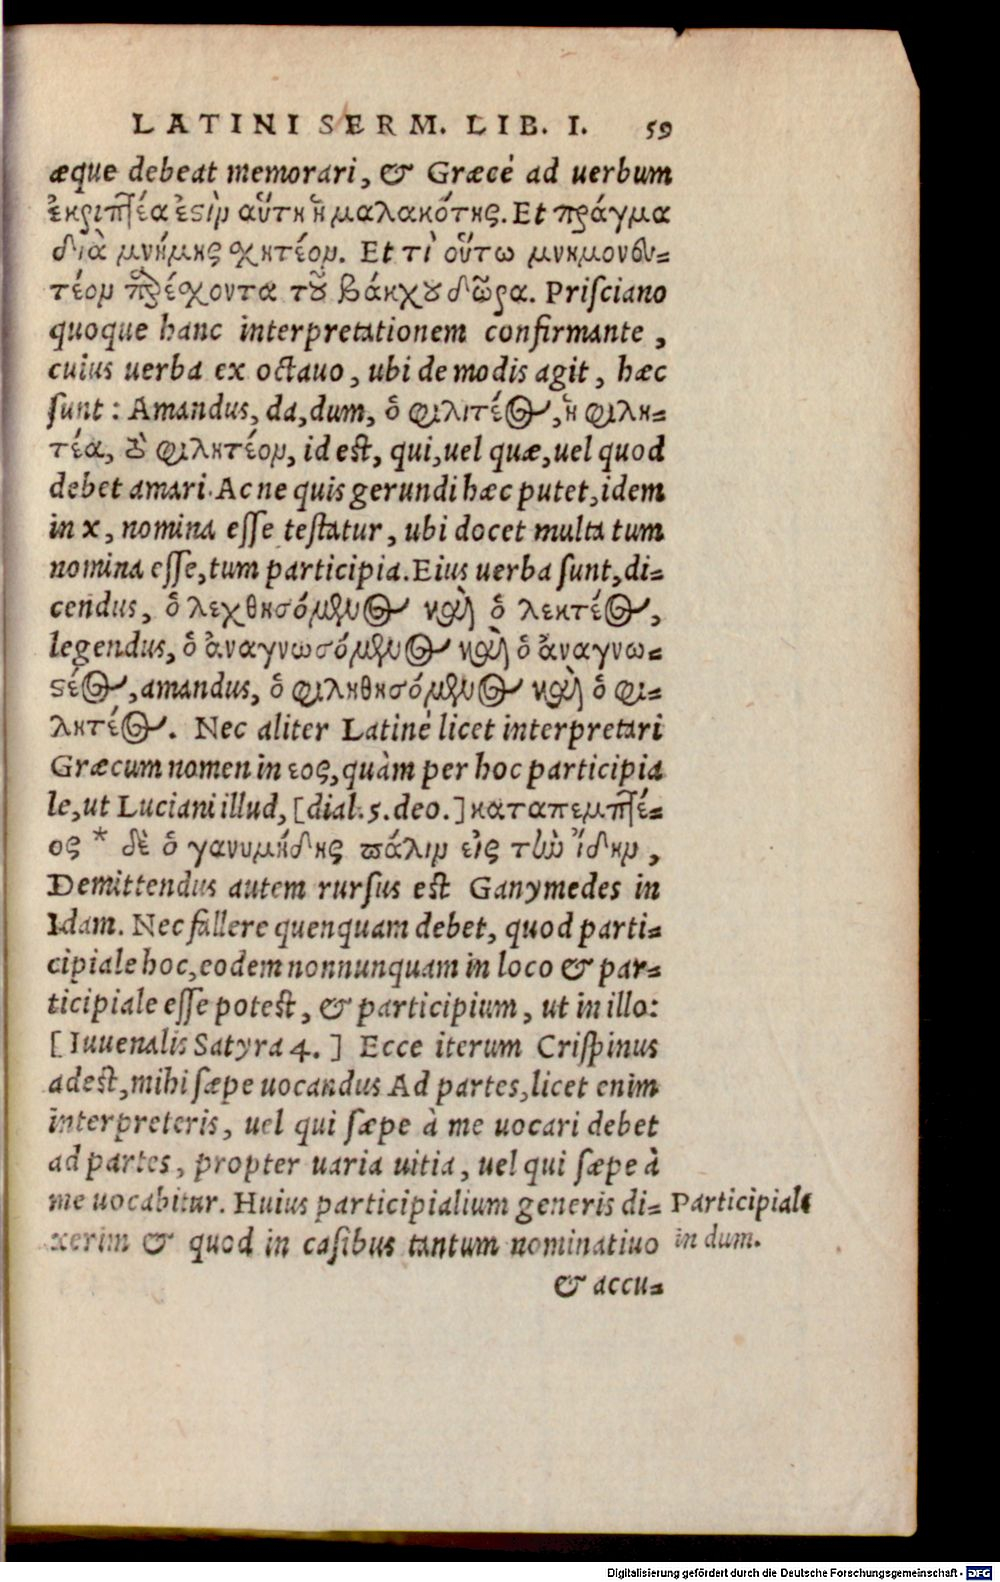 LATINI SERM. LIB. I. 59
æque debeat memorari, & Græcè ad uerbum
ἐκριπτέα ἐστὶν αὕτη ἡ μαλακότης. Et πράγμα
διὰ μνήμης ἑκτέον. Et τὶ οὕτω μνημονευ-
τέον προέχοντα τοῦ βάκχου δῶρα. Prisciano
quoque hanc interpretationem confirmante,
cuius uerba ex octauo, ubi de modis agit, hæc
sunt: Amandus, da, dum, ὁ φιλιτέος, ἡ φιλη-
τέα, τὸ φιλητέον, id est, qui, uel quæ, uel quod
debet amari. Ac ne quis gerundi hæc putet, idem
in x, nomina esse testatur, ubi docet multa tum
nomina esse, tum participia. Eius uerba sunt, di-
cendus, ὁ λεχθησόμενος καὶ ὁ λεκτέος,
legendus, ὁ ἀναγνωσόμενος καὶ ὁ ἀναγνω-
στέος, amandus, ὁ φιληθησόμενος καὶ ὁ φι-
λητέος. Nec aliter Latinè licet interpretari
Græcum nomen in εος, quàm per hoc participia
le, ut Luciani illud, [dial. 5. deo.] καταπεμπτέ-
ος * δὲ ὁ γανυμήδης πάλιν εἰς τὴν ἴδην,
Demittendus autem rursus est Ganymedes in
Idam. Nec fallere quenquam debet, quod parti-
cipiale hoc, eodem nonnunquam in loco & par-
ticipiale esse potest, & participium, ut in illo:
[Iuuenalis Satyra 4.] Ecce iterum Crispinus
adest, mihi sæpe uocandus Ad partes, licet enim
interpreteris, uel qui sæpe à me uocari debet
ad partes, propter uaria uitia, uel qui sæpe à
me uocabitur. Huius participialium generis di-
xerim & quod in casibus tantum nominatiuo
& accu-
Participiale
in dum.
Digitalisierung gefördert durch die Deutsche Forschungsgemeinschaft - DFG